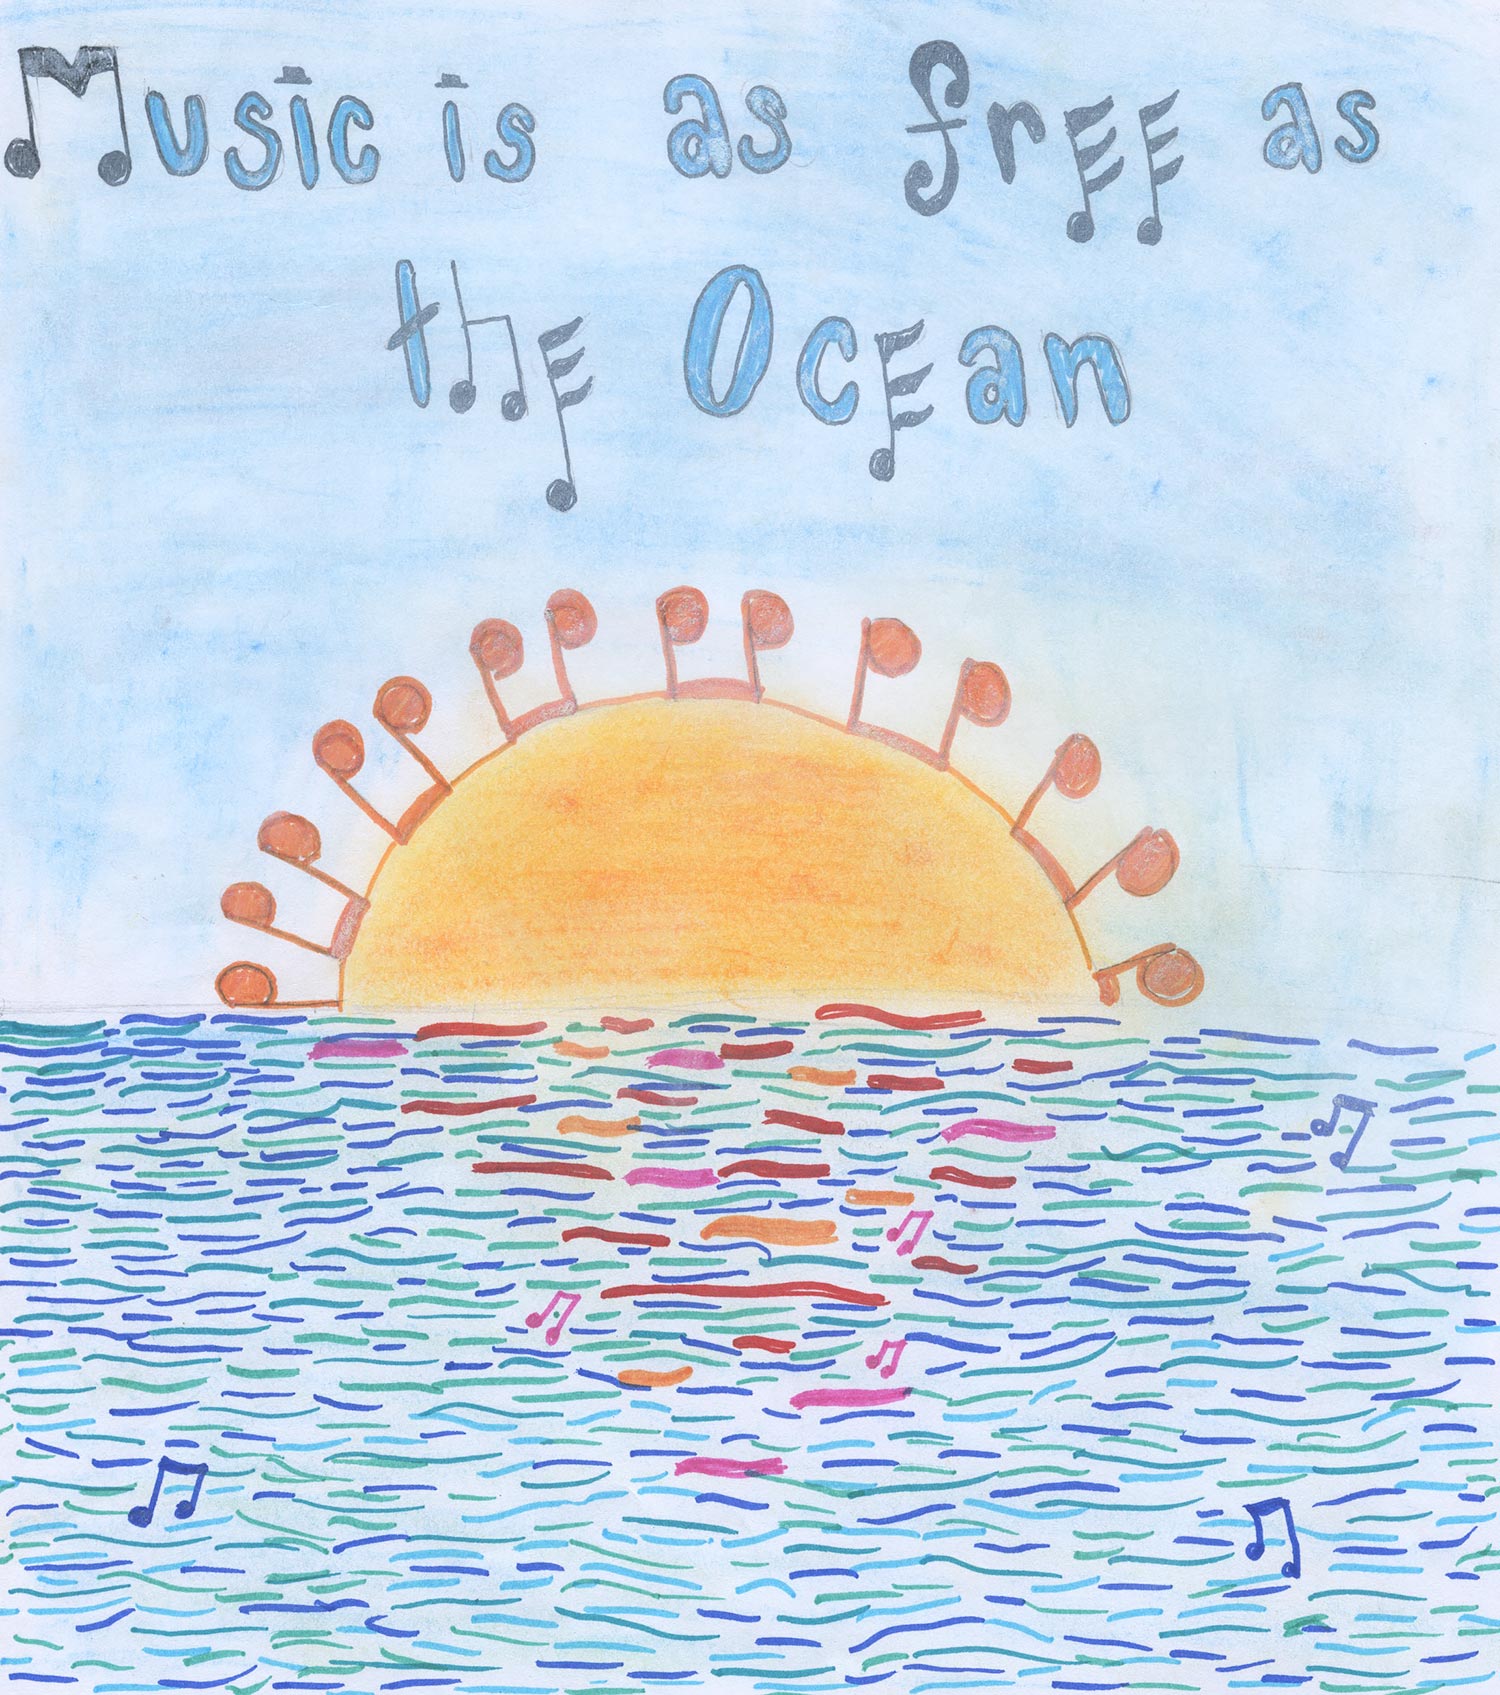 Music is as free as
the Ocean